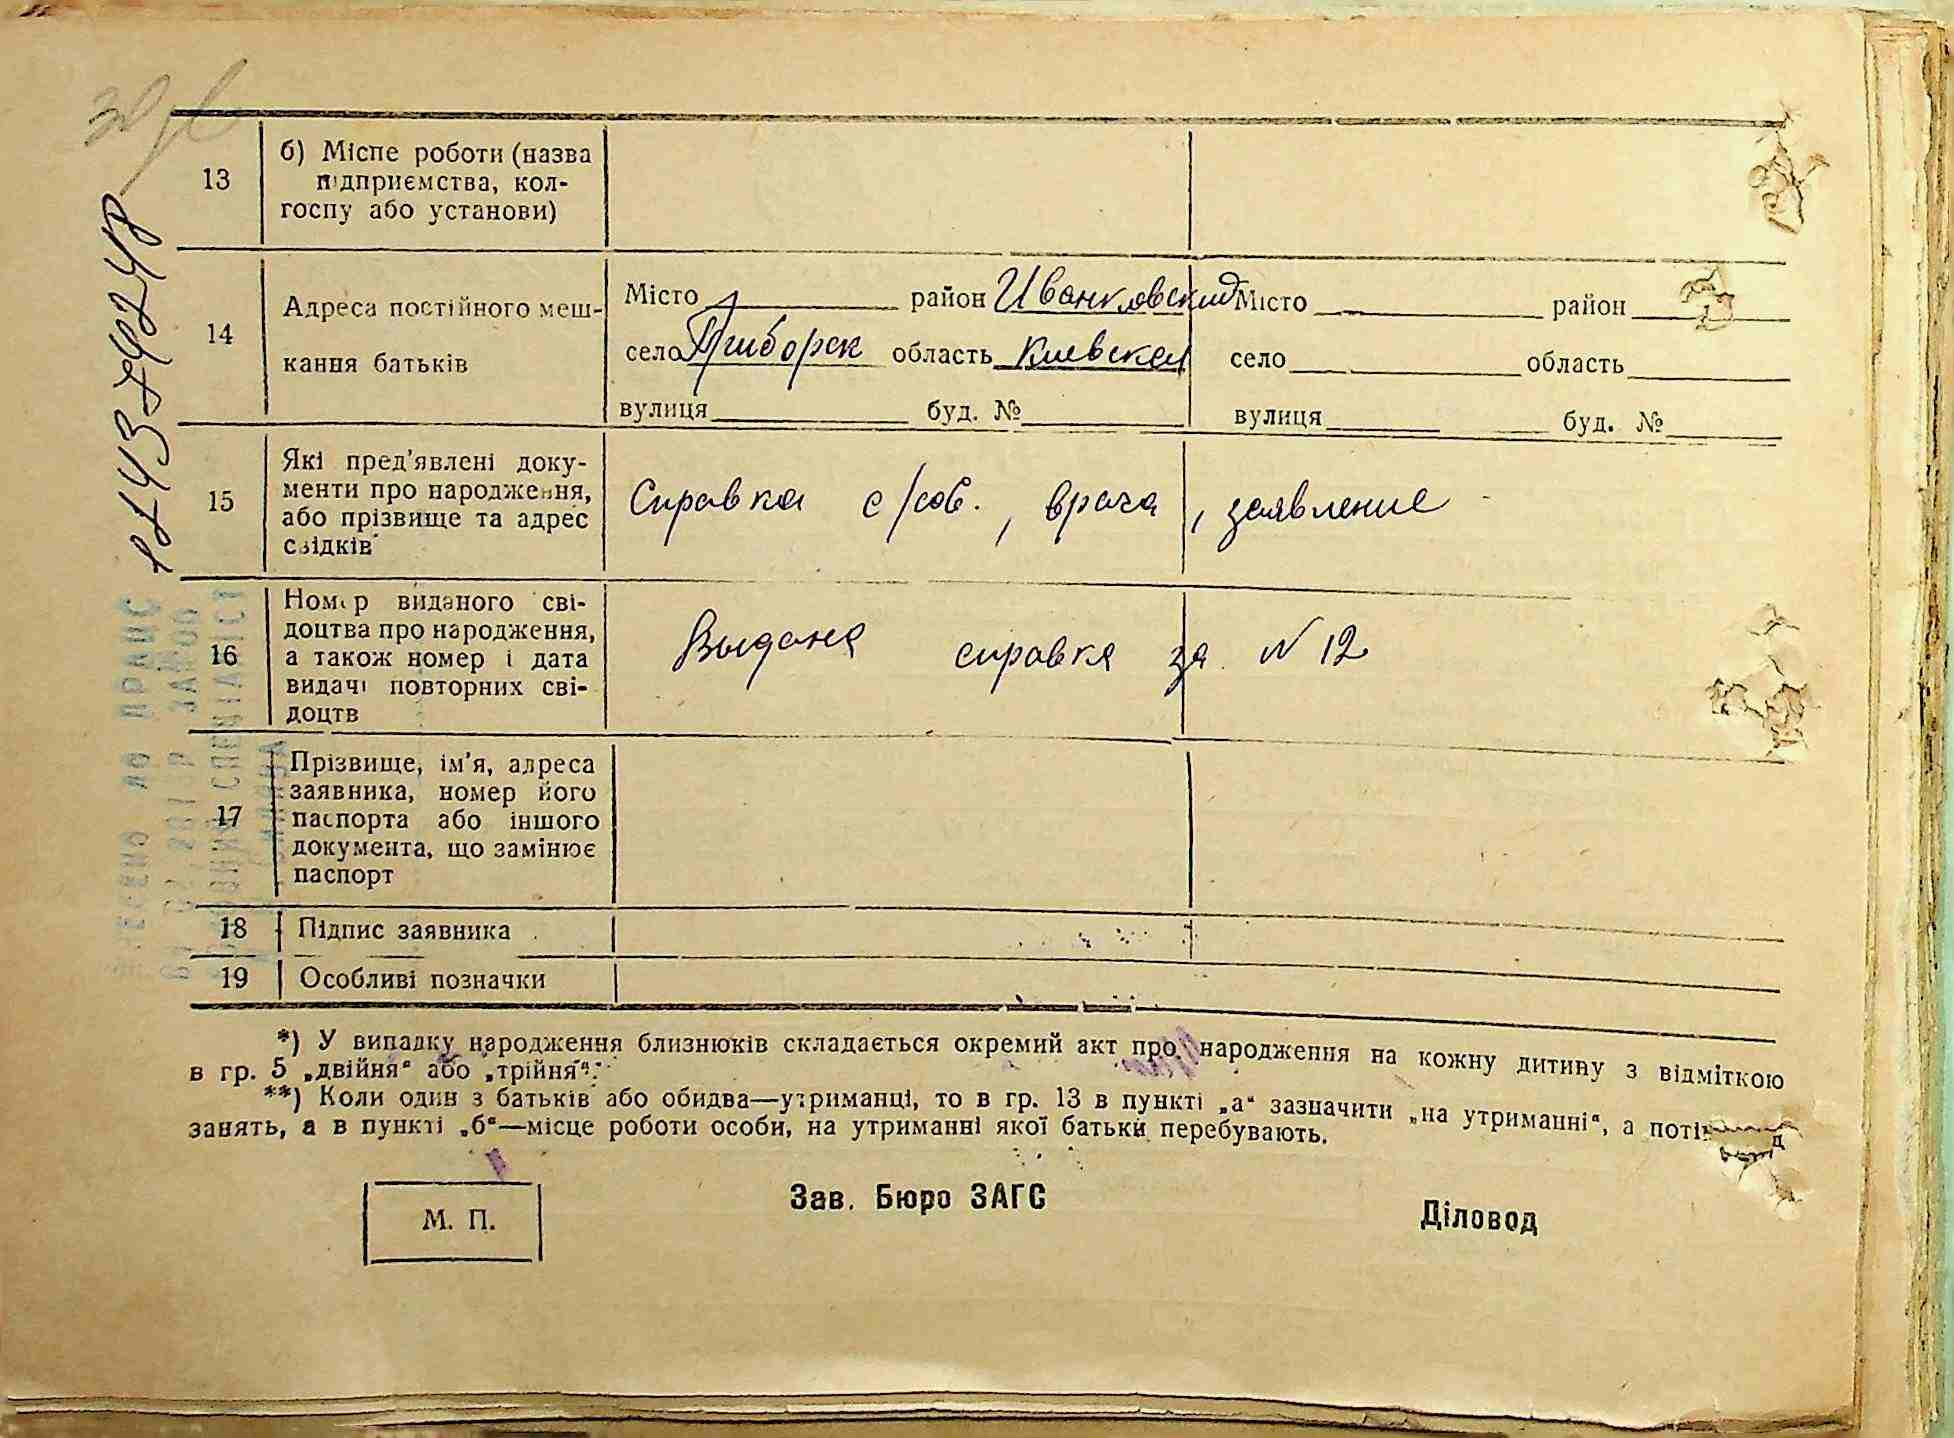 13
б) Місце роботи (назва
підприємства, кол-
госпу або установи)
14
Адреса постійного меш-
кання батьків
Місто район Иванковский
село Приборск область Киевская
вулиця буд. №
Місто район
село область
вулиця буд. №
15
Які пред'явлені доку-
менти про народження,
або прізвище та адрес
свідків
Справка с/сов., врача, заявление
16
Номер виданого сві-
доцтва про народження,
а також номер і дата
видачі повторних сві-
доцтв
Выдана справка за N 12
17
Прізвище, ім'я, адреса
заявника, номер його
паспорта або іншого
документа, що замінює
паспорт
18
Підпис заявника
19
Особливі позначки
*) У випадку народження близнюків складається окремий акт про народження на кожну дитину з відміткою
в гр. 5 „двійня" або „трійня".
**) Коли один з батьків або обидва—утриманці, то в гр. 13 в пункті „а" зазначити „на утриманні", а
занять, а в пункті „б"—місце роботи особи, на утриманні якої батьки перебувають.
М. П.
Зав. Бюро ЗАГС
Діловод